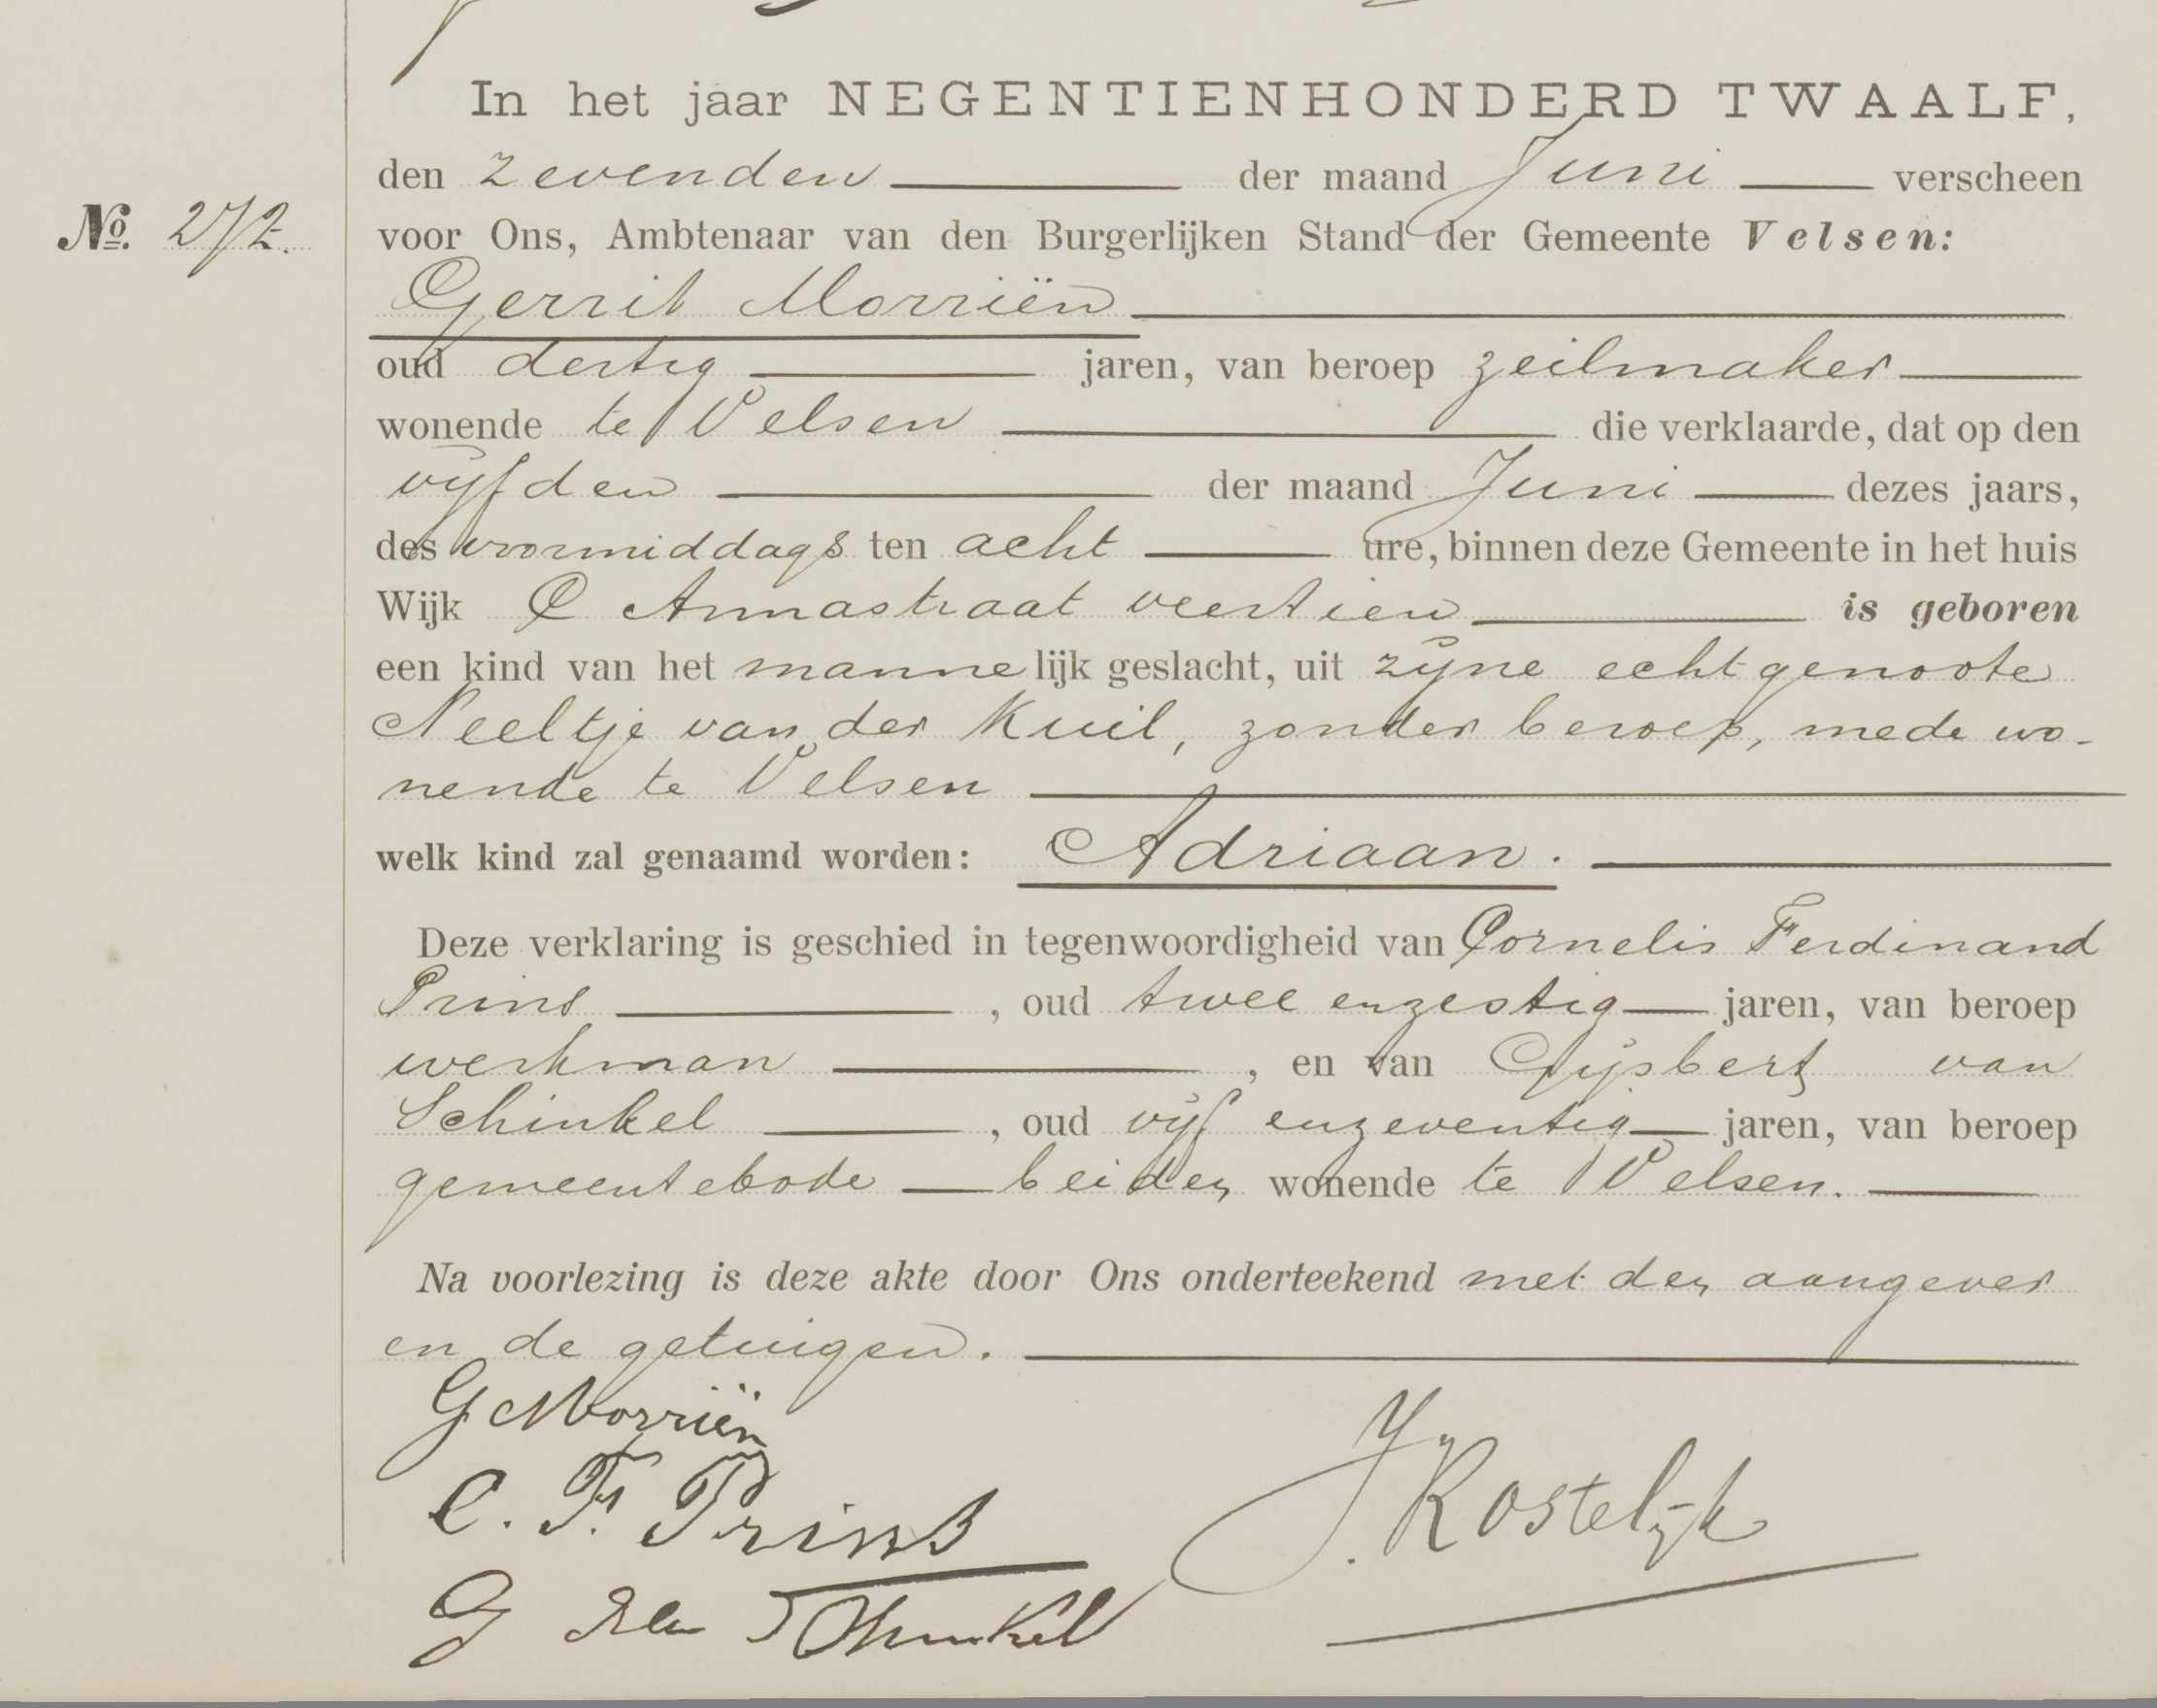 In het jaar NEGENTIENHONDERD TWAALF,
den zevenden der maand Juni verscheen
No. 272.
voor Ons, Ambtenaar van den Burgerlijken Stand der Gemeente Velsen:
Gerrit Morriën
oud dertig jaren, van beroep zeilmaker
wonende te Velsen die verklaarde, dat op den
vijfden der maand Juni dezes jaars,
des voormiddags ten acht ure, binnen deze Gemeente in het huis
Wijk C Annastraat veertien is geboren
een kind van het mannelijk geslacht, uit zijne echtgenoote
Neeltje van der Kuil, zonder beroep, mede wo-
nende te Velsen
welk kind zal genaamd worden: Adriaan.
Deze verklaring is geschied in tegenwoordigheid van Cornelis Ferdinand
Prins, oud twee enzestig jaren, van beroep
werkman, en van Gijsbert van
Schinkel, oud vijf enzeventig jaren, van beroep
gemeentebode beiden wonende te Velsen.
Na voorlezing is deze akte door Ons onderteekend met den aangever
en de getuigen.
G Morriën
C. F. Prins
J. Kostelijk
G van Schinkel